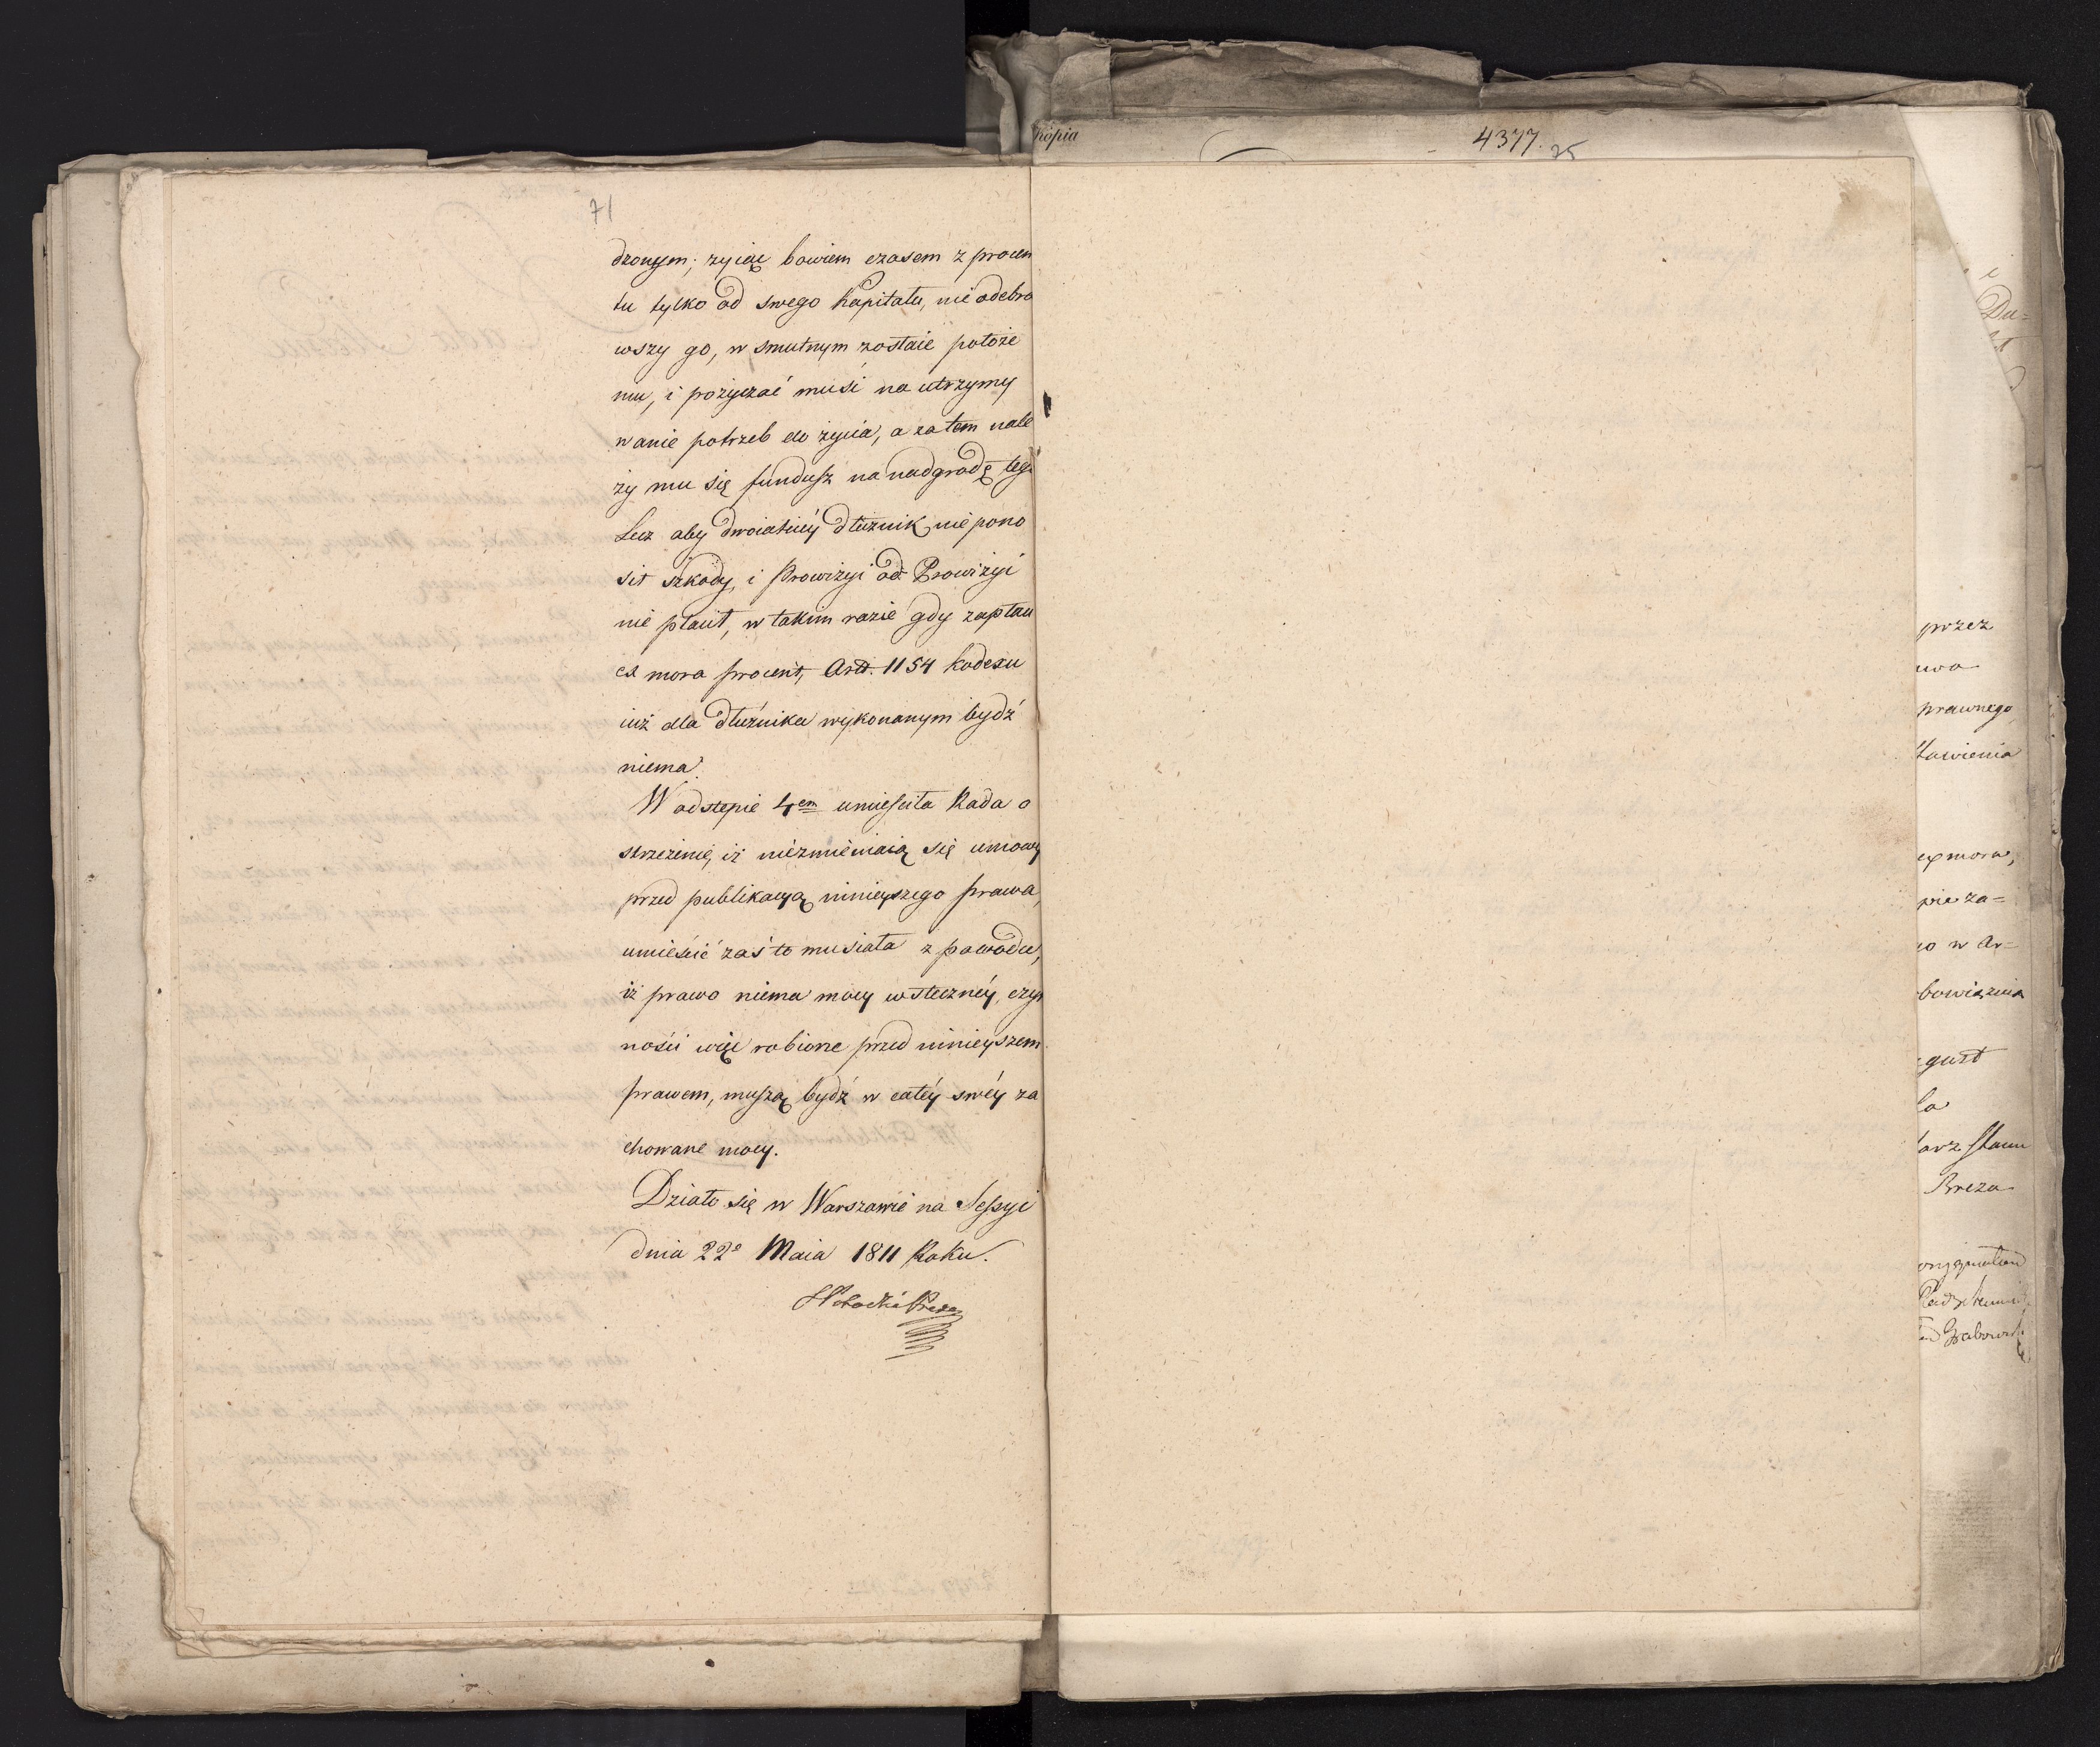 71
dzonym; zyiąc bowiem czasem z procen
tu tylko od swego Kapitału, nie odebra
wszy go, w smutnym zostaie położe
niu, i pożyczać musi na utrzymy
wanie potrzeb do życia, a zatem nale
ży mu się fundusz na nadgrodę tego
Lecz aby dwoiakiey dłużnik nie pono
sił szkody, i Prowizyi od Prowizyi
nie płacił, w takim razie gdy zapłaci
ex mora procent, Artt. 1154 Kodexu
iuż dla dłużnika wykonanym bydź
niema.
W odstępie 4em umieściła Rada o
strzeżenie, iż niezmieniaią się umowy
przed publikacyą ninieyszego prawa,
umieścić zaś to musiała z powodu,
iż prawo niema mocy wsteczney, czyn
ności więc robione przed ninieyszem
prawem, muszą bydź w całéy swéy za
chowane mocy.
Działo się w Warszawie na Sessyi
dnia 22o Maia 1811 Roku.
Kopia
4377.
75
Du=
przez
prawnego
stawienia
ex mora,
wie za=
go w Ar=
bowiązuia
gust
la
tarz Stanu
Breza
oryginałem
Grabowski